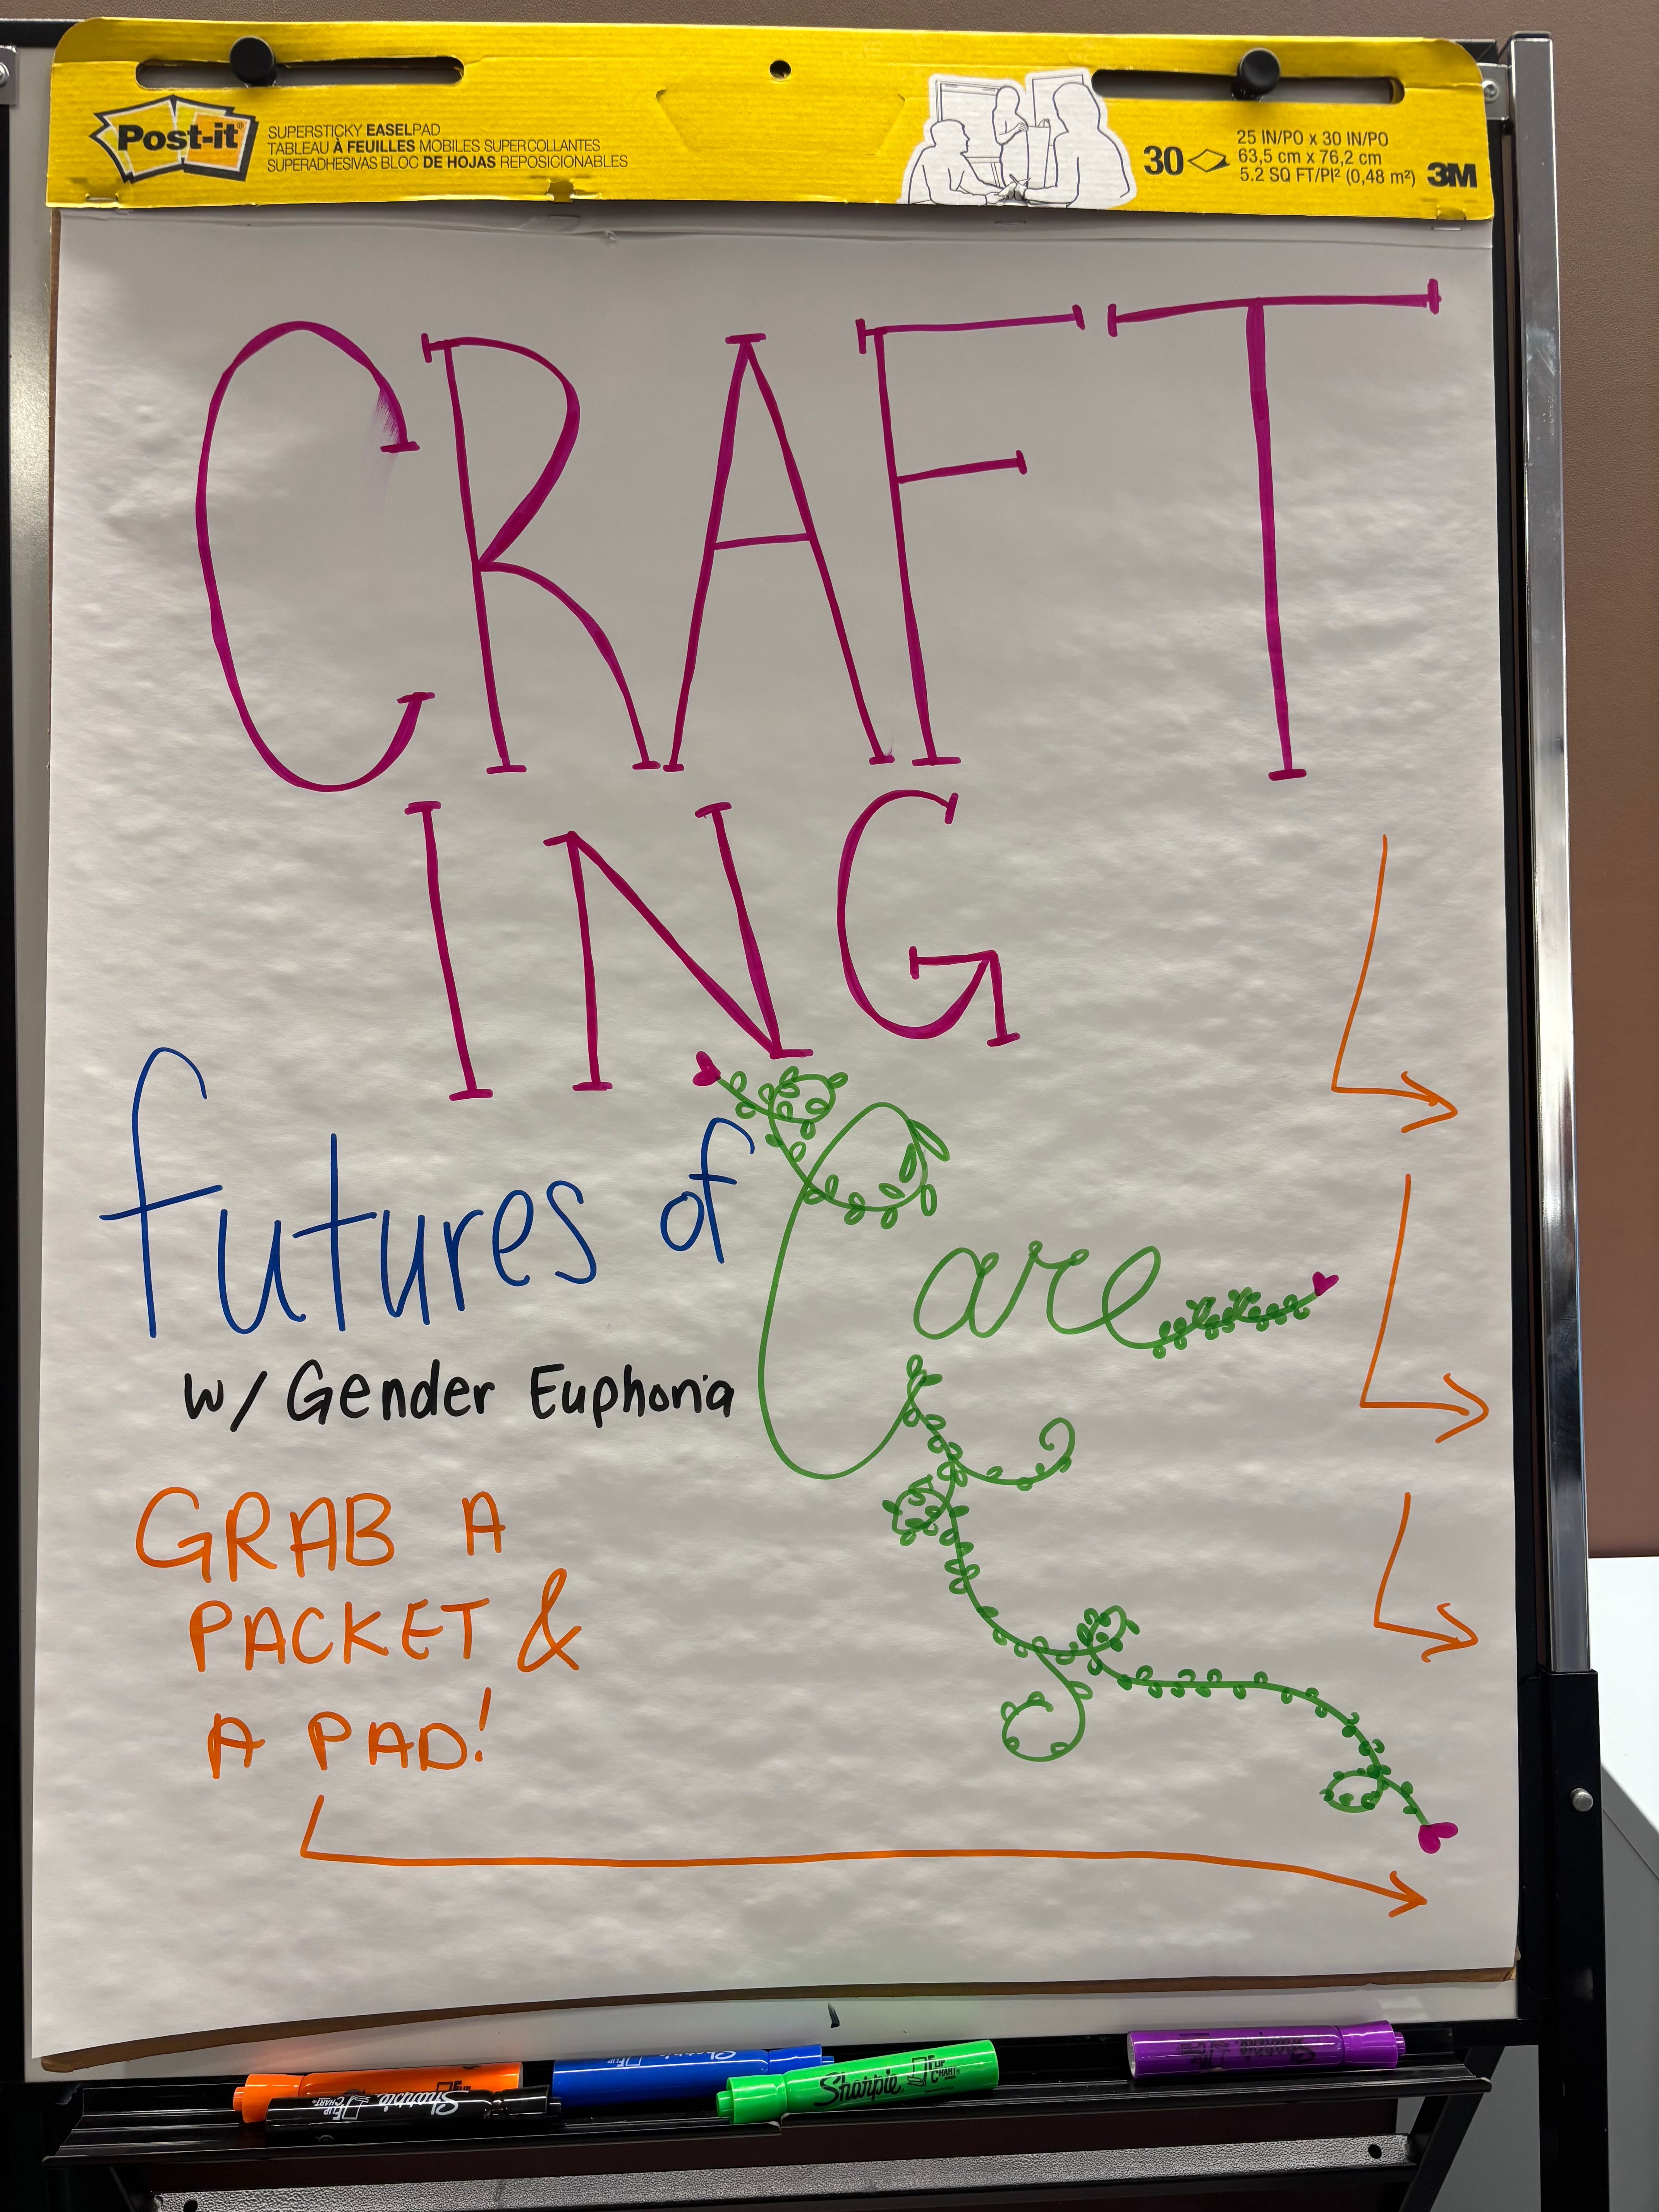 Post-it
SUPERSTICKY EASELPAD
TABLEAU À FEUILLES MOBILES SUPERCOLLANTES
SUPERADHESIVAS BLOC DE HOJAS REPOSICIONABLES
30
25 IN/PO x 30 IN/PO
63,5 cm x 76,2 cm
5.2 SQ FT/PI² (0,48 m²)
3M
CRAFT
ING
futures of Care
w/ Gender Euphoria
GRAB A
PACKET &
A PAD!
Sharpie FLIP CHART
Sharpie
Sharpie FLIP CHART
Sharpie